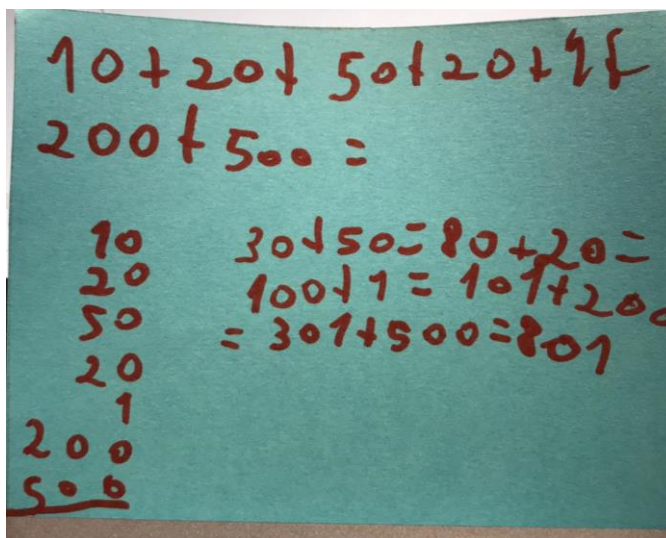 10+20+50+20+1+
200+500=
10
20
50
20
1
200
500
30+50=80+20=
100+1=101+200
=301+500=801